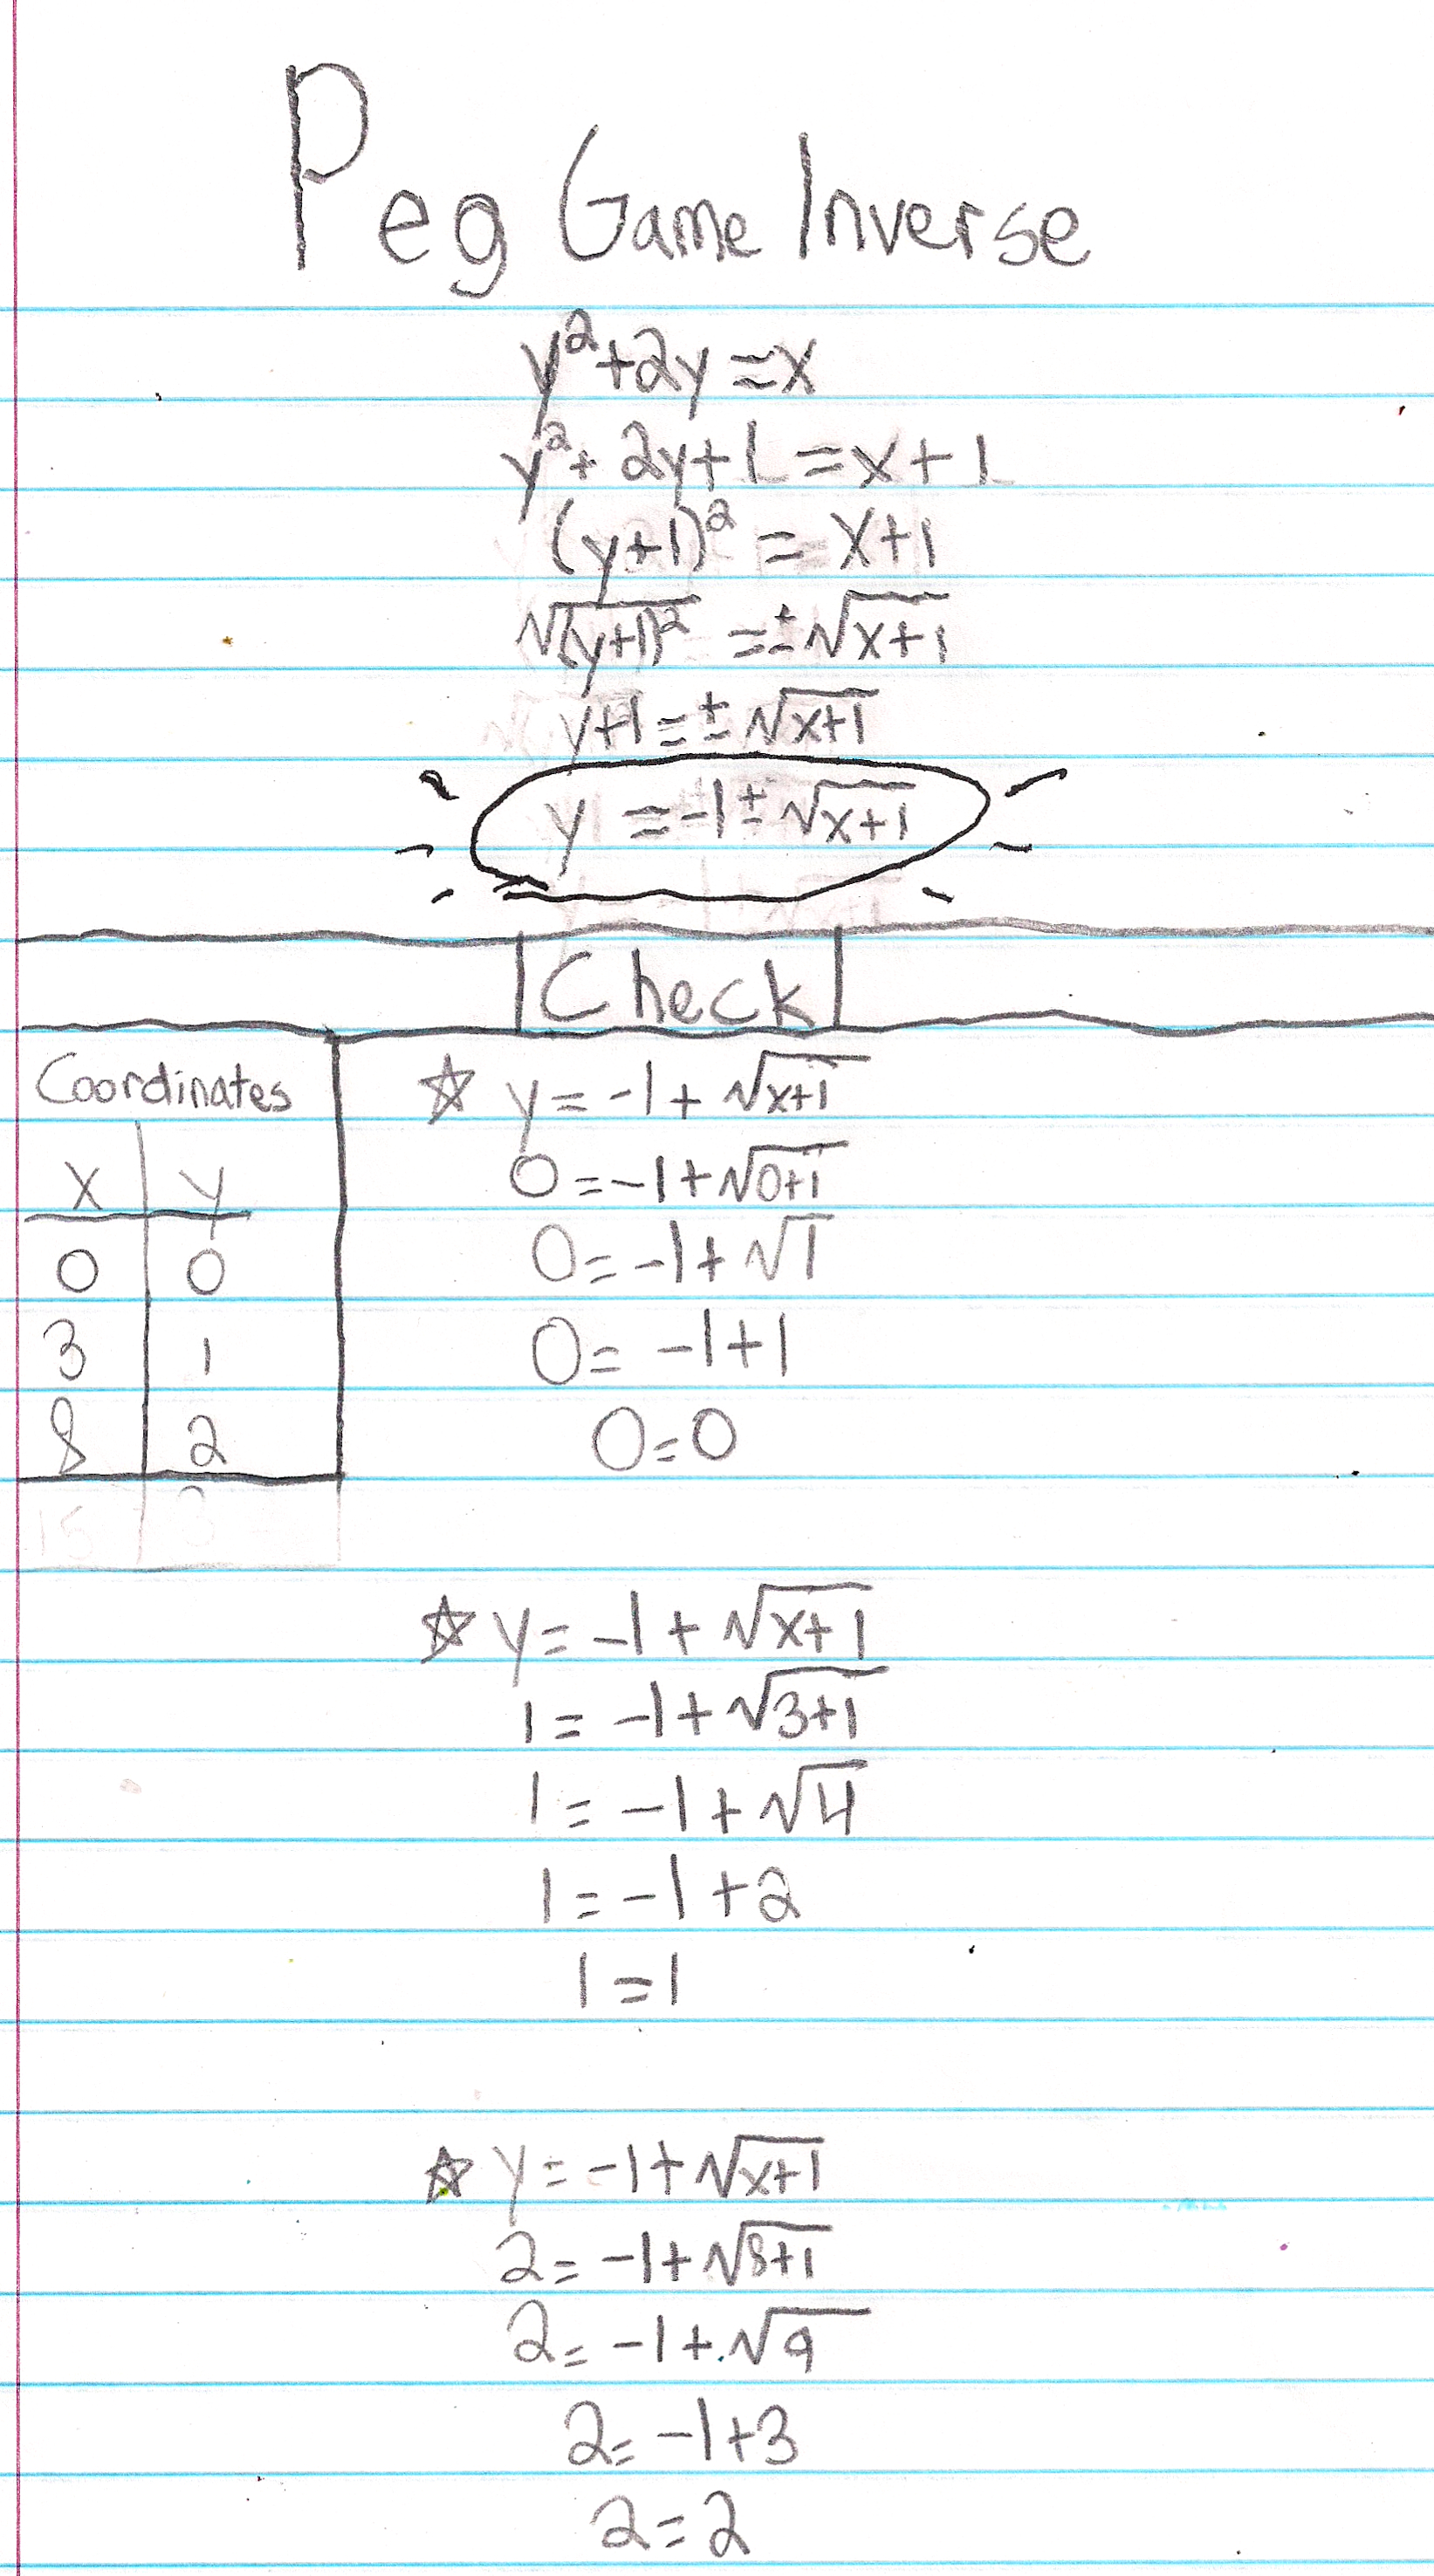 Peg Game Inverse
y²+2y=x
y²+2y+1=x+1
(y+1)²=x+1
√(y+1)²=±√x+1
y+1=±√x+1
y=-1±√x+1
Check
Coordinates
x y
0 0
3 1
8 2
15 3
☆ y=-1+√x+1
0=-1+√0+1
0=-1+√1
0=-1+1
0=0
☆ y=-1+√x+1
1=-1+√3+1
1=-1+√4
1=-1+2
1=1
☆ y=-1+√x+1
2=-1+√8+1
2=-1+√9
2=-1+3
2=2